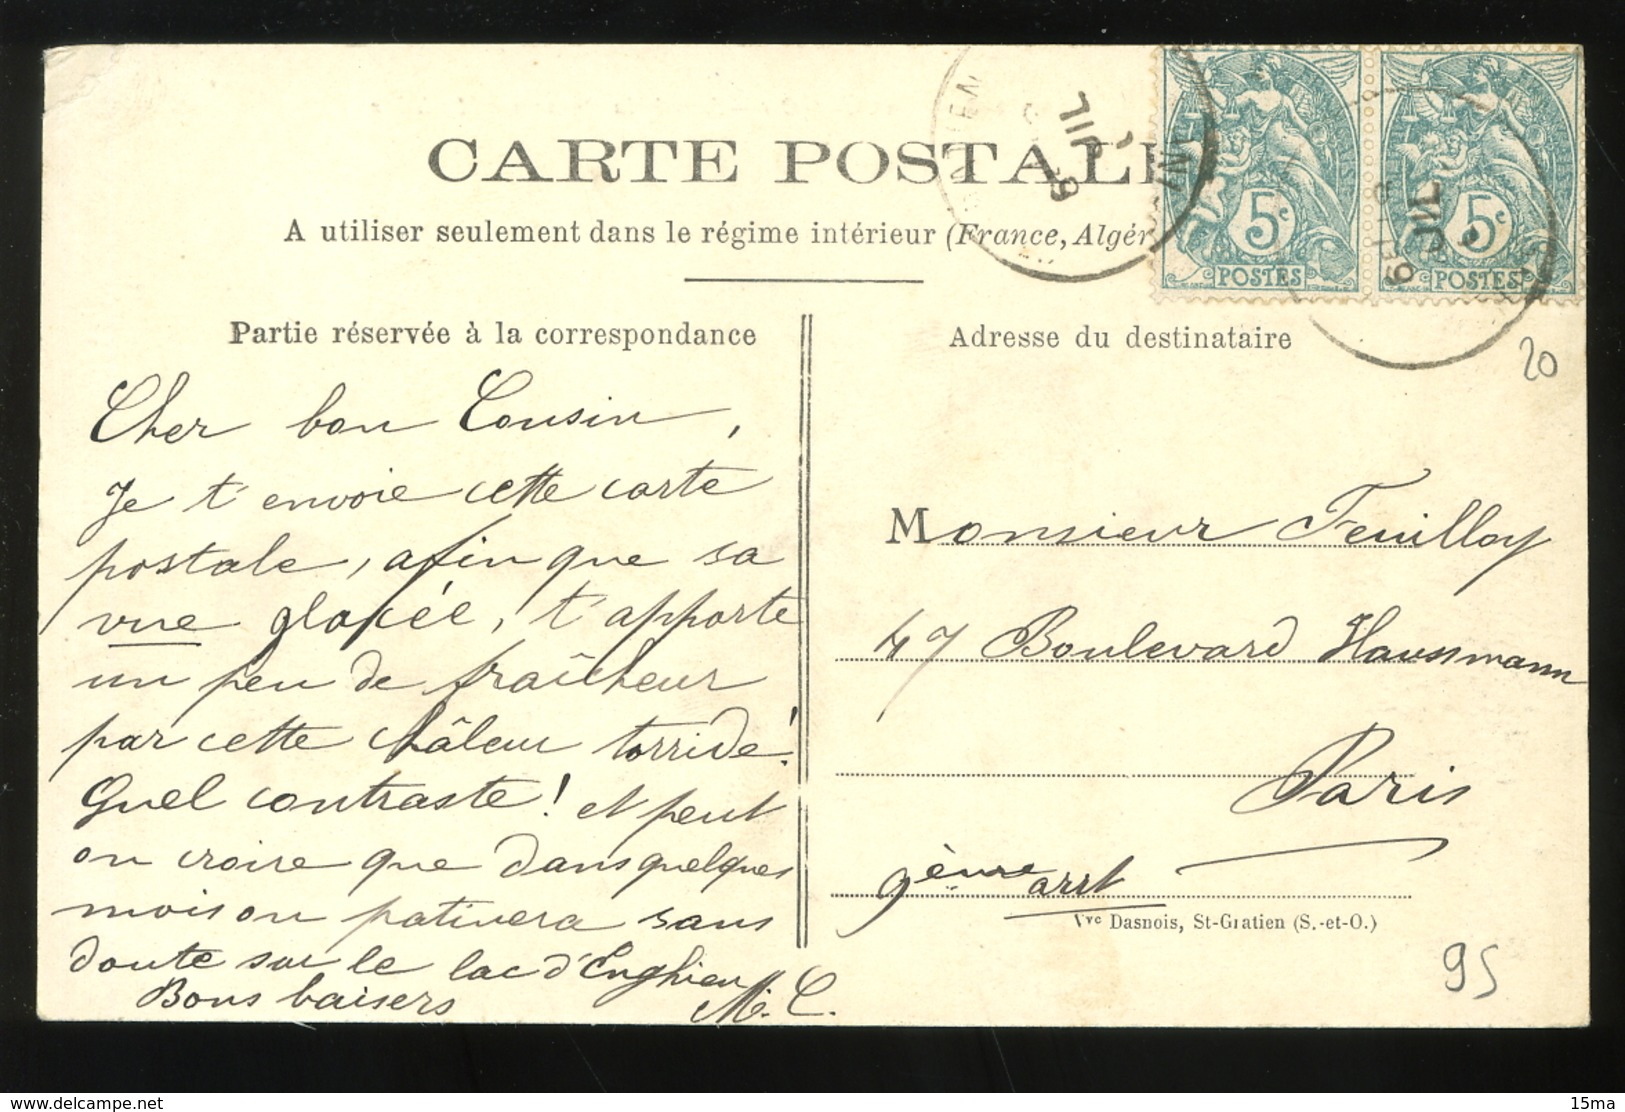 CARTE POSTALE
A utiliser seulement dans le régime intérieur (France, Algér
Partie réservée à la correspondance
Cher bon Cousin,
Je t'envoie cette carte
postale, afin que sa
vue glacée, t'apporte
un peu de fraîcheur
par cette châleur torride!
Quel contraste! et peut
on croire que dans quelques
mois on patinera sans
doute sur le lac d'Enghien
Bons baisers M. C.
5c
POSTES
5c
POSTES
JUIL
JUIL
Adresse du destinataire
20
Monsieur Feuilloy
47 Boulevard Haussmann
Paris
9ème arrt
Vve Dasnois, St-Gratien (S.-et-O.)
95
http://www.delcampe.net
15ma